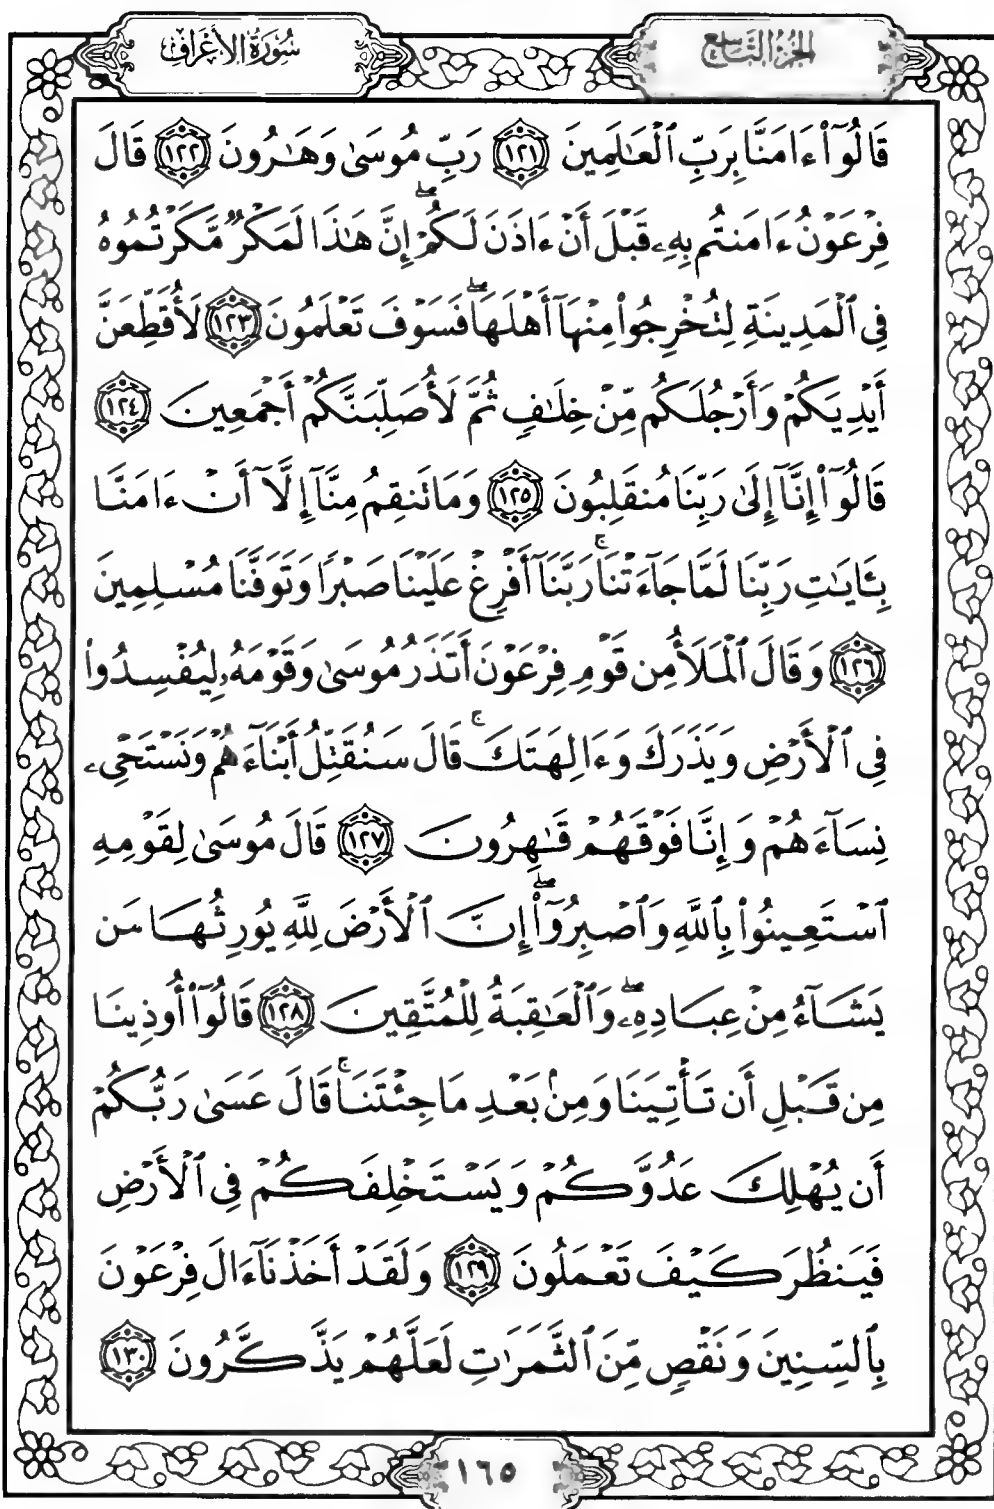 الجزء التاسع
سورة الأعراف
قَالُوٓا۟ ءَامَنَّا بِرَبِّ ٱلْعَٰلَمِينَ ١٢١ رَبِّ مُوسَىٰ وَهَٰرُونَ ١٢٢ قَالَ
فِرْعَوْنُ ءَامَنتُم بِهِۦ قَبْلَ أَنْ ءَاذَنَ لَكُمْ ۖ إِنَّ هَٰذَا لَمَكْرٌ مَّكَرْتُمُوهُ
فِى ٱلْمَدِينَةِ لِتُخْرِجُوا۟ مِنْهَآ أَهْلَهَا ۖ فَسَوْفَ تَعْلَمُونَ ١٢٣ لَأُقَطِّعَنَّ
أَيْدِيَكُمْ وَأَرْجُلَكُم مِّنْ خِلَٰفٍ ثُمَّ لَأُصَلِّبَنَّكُمْ أَجْمَعِينَ ١٢٤
قَالُوٓا۟ إِنَّآ إِلَىٰ رَبِّنَا مُنقَلِبُونَ ١٢٥ وَمَا تَنقِمُ مِنَّآ إِلَّآ أَنْ ءَامَنَّا
بِـَٔايَٰتِ رَبِّنَا لَمَّا جَآءَتْنَا ۚ رَبَّنَآ أَفْرِغْ عَلَيْنَا صَبْرًا وَتَوَفَّنَا مُسْلِمِينَ
١٢٦ وَقَالَ ٱلْمَلَأُ مِن قَوْمِ فِرْعَوْنَ أَتَذَرُ مُوسَىٰ وَقَوْمَهُۥ لِيُفْسِدُوا۟
فِى ٱلْأَرْضِ وَيَذَرَكَ وَءَالِهَتَكَ ۚ قَالَ سَنُقَتِّلُ أَبْنَآءَهُمْ وَنَسْتَحْىِۦ
نِسَآءَهُمْ وَإِنَّا فَوْقَهُمْ قَٰهِرُونَ ١٢٧ قَالَ مُوسَىٰ لِقَوْمِهِ
ٱسْتَعِينُوا۟ بِٱللَّهِ وَٱصْبِرُوٓا۟ ۖ إِنَّ ٱلْأَرْضَ لِلَّهِ يُورِثُهَا مَن
يَشَآءُ مِنْ عِبَادِهِۦ ۖ وَٱلْعَٰقِبَةُ لِلْمُتَّقِينَ ١٢٨ قَالُوٓا۟ أُوذِينَا
مِن قَبْلِ أَن تَأْتِيَنَا وَمِنۢ بَعْدِ مَا جِئْتَنَا ۚ قَالَ عَسَىٰ رَبُّكُمْ
أَن يُهْلِكَ عَدُوَّكُمْ وَيَسْتَخْلِفَكُمْ فِى ٱلْأَرْضِ
فَيَنظُرَ كَيْفَ تَعْمَلُونَ ١٢٩ وَلَقَدْ أَخَذْنَآ ءَالَ فِرْعَوْنَ
بِٱلسِّنِينَ وَنَقْصٍ مِّنَ ٱلثَّمَرَٰتِ لَعَلَّهُمْ يَذَّكَّرُونَ ١٣٠
١٦٥